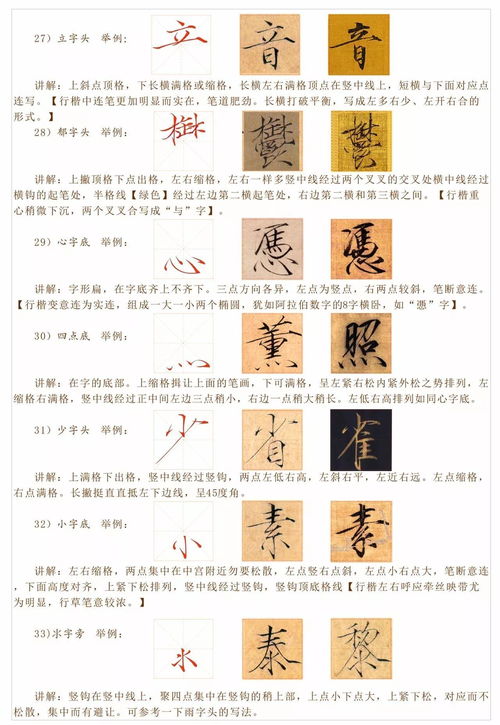 27) 立字头 举例: 立 音 音
讲解：上斜点顶格，下长横满格或缩格，长横左右满格顶点在竖中线上，短横与下面对应点
连写。【行楷中连笔更加明显而实在，笔道肥劲。长横打破平衡，写成左多右少、左开右合的
形式。】
28) 鬱字头 举例: 鬱
讲解：上撇顶格下点出格，左右缩格，左右一样多竖中线经过两个叉叉的交叉处横中线经过
横钩的起笔处，半格线【绿色】经过左边第二横起笔处，右边第二横和第三横之间。【行楷重
心稍微下沉，两个叉叉合写成“与”字】。
29) 心字底 举例： 心 憑 憑
讲解：字形扁，在字底齐上不齐下。三点方向各异，左点为竖点，右两点较斜，笔断意连。
【行楷变意连为实连，组成一大一小两个椭圆，犹如阿拉伯数字的8字横卧，如“憑”字】。
30) 四点底 举例： 灬 薰 照
讲解：在字的底部。上缩格揖让上面的笔画，下可满格，呈左紧右松内紧外松之势排列，左
缩格右满格，竖中线经过正中间左边三点稍小，右边一点稍大稍长。左低右高排列如同心字底。
31) 少字头 举例： 少 省 雀
讲解：上满格下出格，竖中线经过竖钩，两点左低右高，左斜右平，左近右远。左点缩格，
右点满格。长撇挺直直抵左下边线，呈45度角。
32) 小字底 举例： 小 素 素
讲解：左右缩格，两点集中在中宫附近勿要松散，左点竖右点斜，左点小右点大，笔断意连
，下面高度对齐，上紧下松排列，竖中线经过竖钩，竖钩顶底格线【行楷左右呼应牵丝映带尤
为明显，行草笔意较浓。】
33)氺字旁 举例： 氺 泰 黎
讲解：竖钩在竖中线上，聚四点集中在竖钩的稍上部，上点小下点大，上紧下松，对应而不
松散，集中而有避让。可参考一下雨字头的写法。